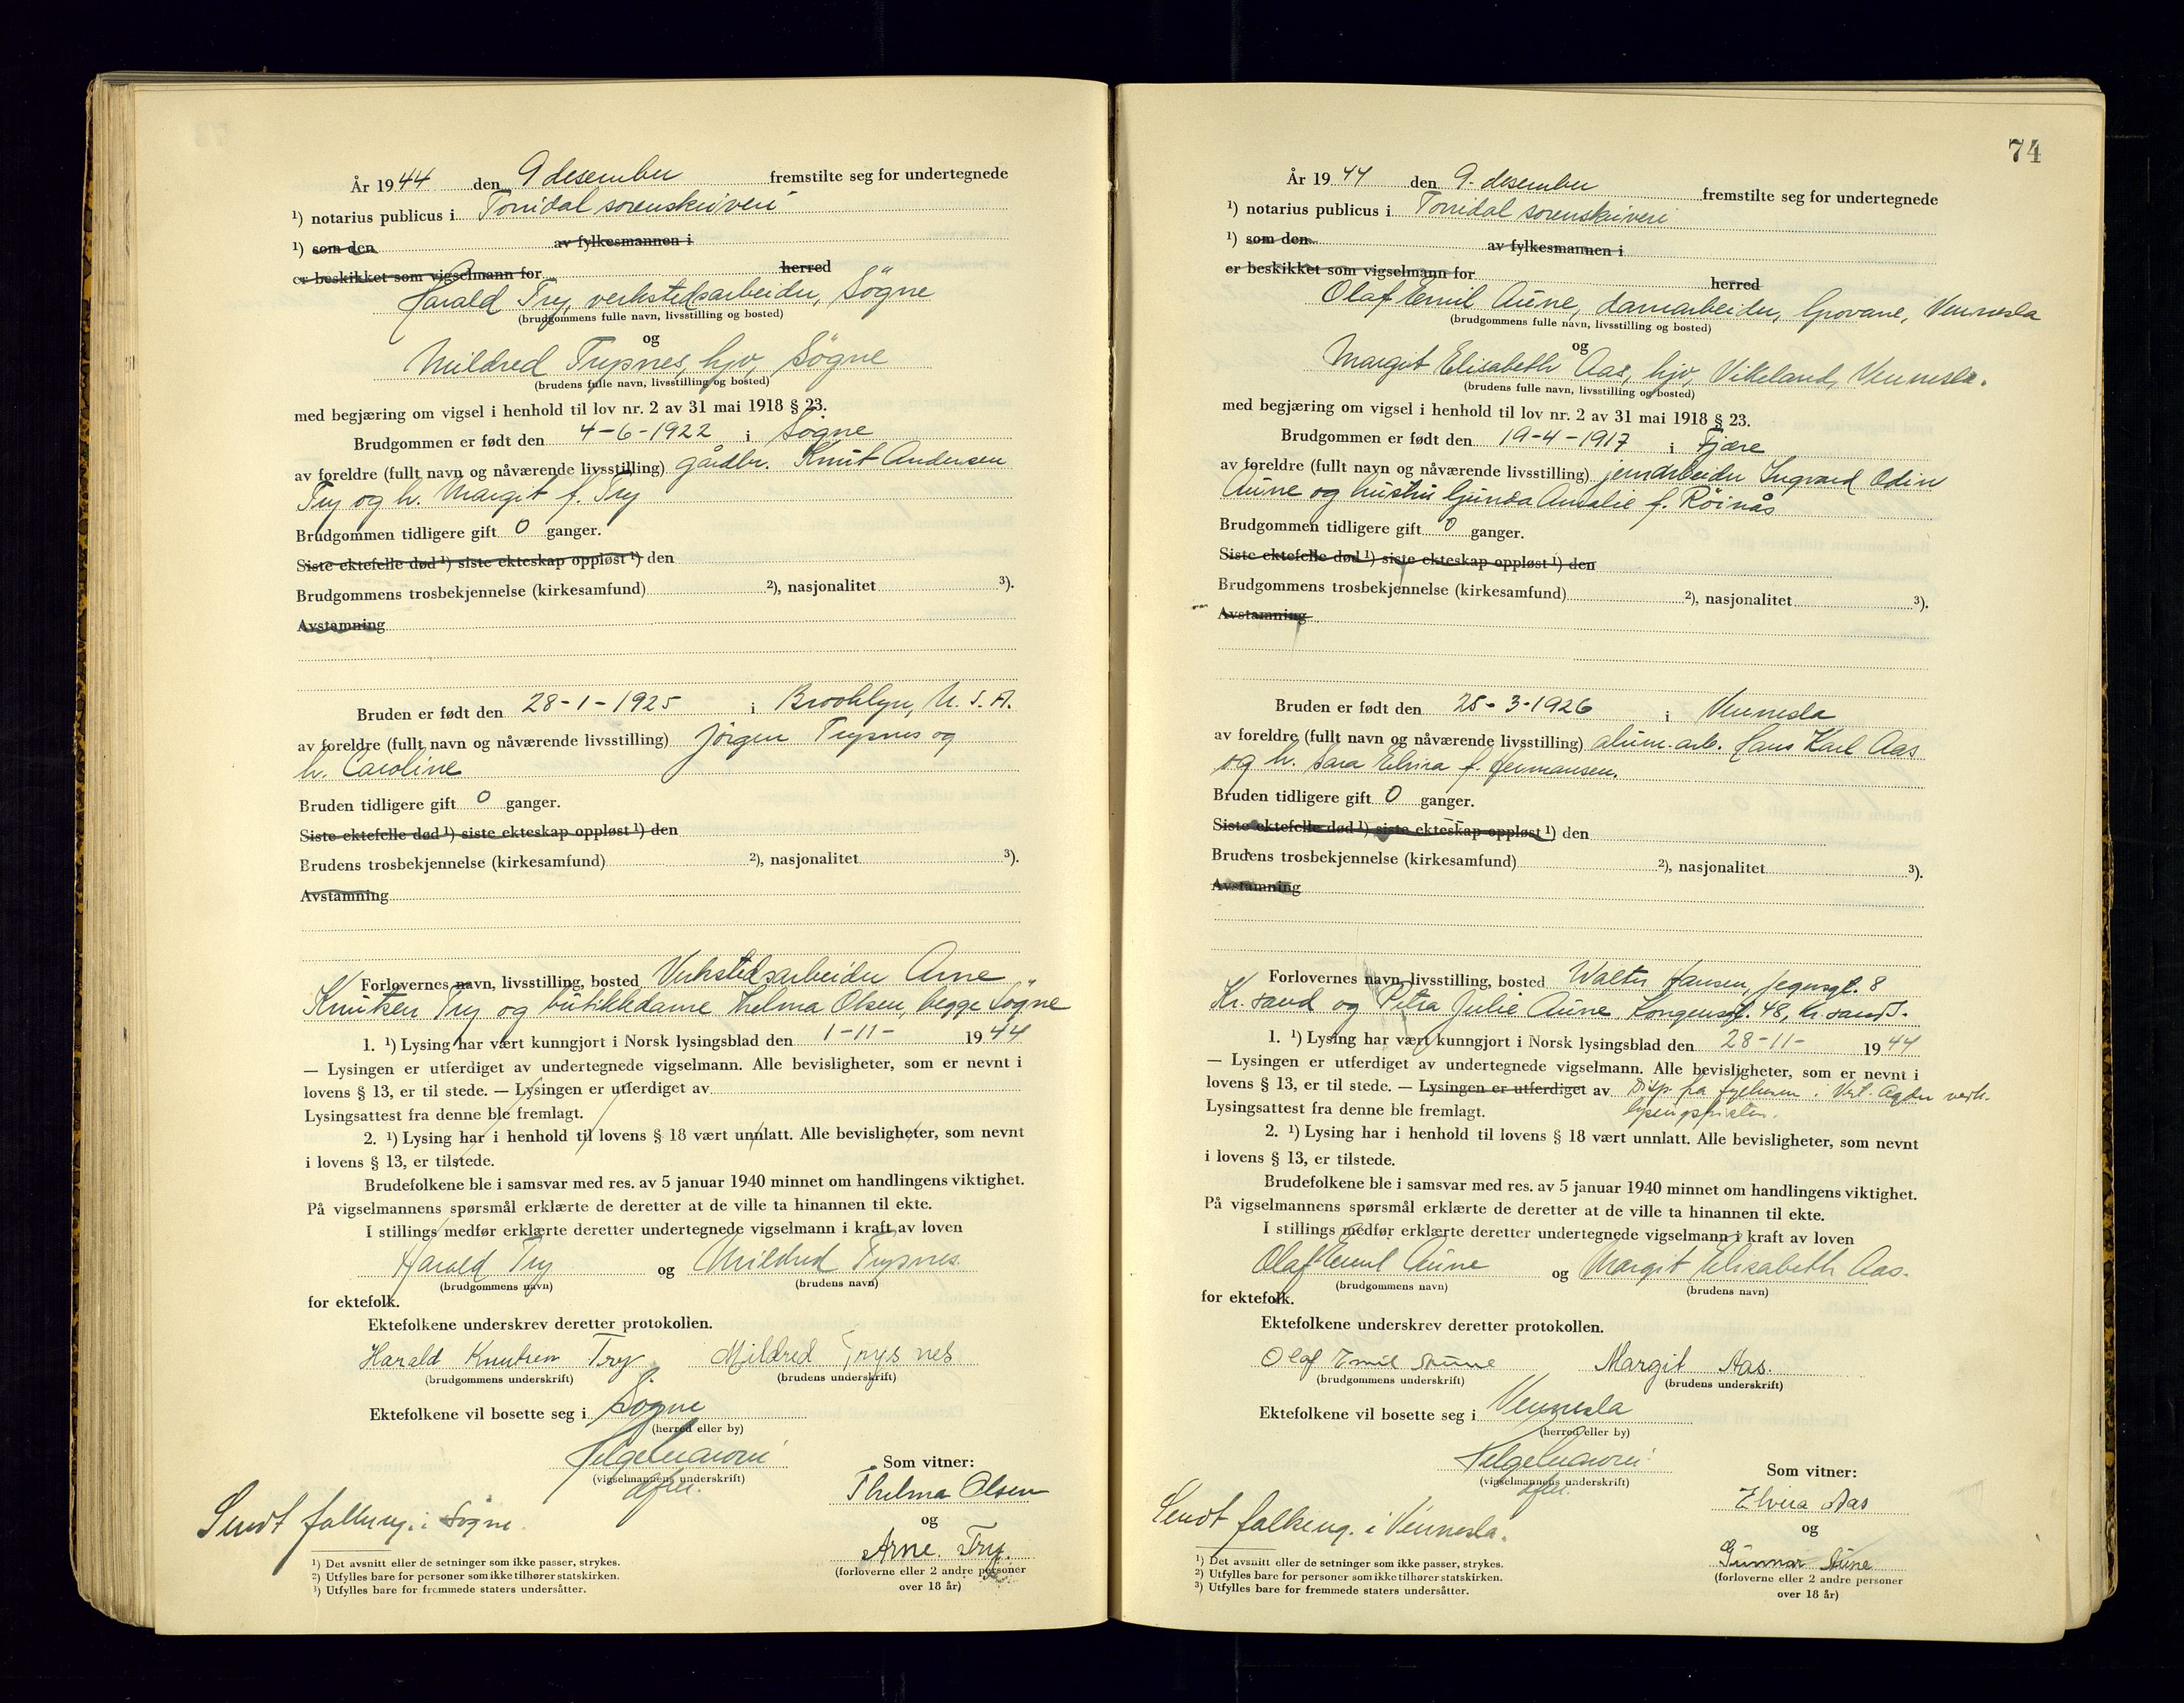 År 1944 den 9 desember fremstilte seg for undertegnede
¹) notarius publicus i Torridal sorenskriveri
¹) som den av fylkesmannen i
er beskikket som vigselmann for herred
Harald Try, verkstedsarbeider, Søgne
(brudgommens fulle navn, livsstilling og bosted)
og
Mildred Trysnes, hjv, Søgne
(brudens fulle navn, livsstilling og bosted)
med begjæring om vigsel i henhold til lov nr. 2 av 31 mai 1918 § 23.
Brudgommen er født den 4-6-1922 i Søgne
av foreldre (fullt navn og nåværende livsstilling) gårdbr. Knut Andersen
Try og h. Margit f. Try
Brudgommen tidligere gift 0 ganger.
Siste ektefelle død ¹) siste ekteskap oppløst ¹) den
Brudgommens trosbekjennelse (kirkesamfund) ²), nasjonalitet ³).
Avstamning
Bruden er født den 28-1-1925 i Brooklyn, U.S.A.
av foreldre (fullt navn og nåværende livsstilling) Jörgen Trysnes og
h. Caroline
Bruden tidligere gift 0 ganger.
Siste ektefelle død ¹) siste ekteskap oppløst ¹) den
Brudens trosbekjennelse (kirkesamfund) ²), nasjonalitet ³).
Avstamning
Forlovernes navn, livsstilling, bosted Verkstedsarbeider Arne
Knutsen Try og butikkdame Thelma Olsen, begge Søgne
1. ¹) Lysing har vært kunngjort i Norsk lysingsblad den 1-11- 1944
— Lysingen er utferdiget av undertegnede vigselmann. Alle bevisligheter, som er nevnt i
lovens § 13, er til stede. — Lysingen er utferdiget av
Lysingsattest fra denne ble fremlagt.
2. ¹) Lysing har i henhold til lovens § 18 vært unnlatt. Alle bevisligheter, som nevnt
i lovens § 13, er tilstede.
Brudefolkene ble i samsvar med res. av 5 januar 1940 minnet om handlingens viktighet.
På vigselmannens spørsmål erklærte de deretter at de ville ta hinannen til ekte.
I stillings medfør erklærte deretter undertegnede vigselmann i kraft av loven
Harald Try og Mildred Trysnes.
(brudgommens navn) (brudens navn)
for ektefolk.
Ektefolkene underskrev deretter protokollen.
Harald Knutsen Try Mildred Trysnes
(brudgommens underskrift) (brudens underskrift)
Ektefolkene vil bosette seg i Søgne
(herred eller by)
(vigselmannens underskrift)
Som vitner:
Thelma Olsen
og
Arne. Try.
(forloverne eller 2 andre personer
over 18 år)
Sendt folkereg. i Søgne.
¹) Det avsnitt eller de setninger som ikke passer, strykes.
²) Utfylles bare for personer som ikke tilhører statskirken.
³) Utfylles bare for fremmede staters undersåtter.
74
År 1944 den 9. desember fremstilte seg for undertegnede
¹) notarius publicus i Torridal sorenskriveri
¹) som den av fylkesmannen i
er beskikket som vigselmann for herred
Olaf Emil Aune, damarbeider, Grovane, Vennesla
(brudgommens fulle navn, livsstilling og bosted)
og
Margit Elisabeth Aas, hjv, Vikeland, Vennesla.
(brudens fulle navn, livsstilling og bosted)
med begjæring om vigsel i henhold til lov nr. 2 av 31 mai 1918 § 23.
Brudgommen er født den 19-4-1917 i Fjære
av foreldre (fullt navn og nåværende livsstilling) jernarbeider Ingvard Odin
Aune og hustru Gunda Amalie f. Röinås
Brudgommen tidligere gift 0 ganger.
Siste ektefelle død ¹) siste ekteskap oppløst ¹) den
Brudgommens trosbekjennelse (kirkesamfund) ²), nasjonalitet ³).
Avstamning
Bruden er født den 28-3-1926 i Vennesla
av foreldre (fullt navn og nåværende livsstilling) alum. arb. Hans Karl Aas
og h. Sara Elvira f. Hermansen.
Bruden tidligere gift 0 ganger.
Siste ektefelle død ¹) siste ekteskap oppløst ¹) den
Brudens trosbekjennelse (kirkesamfund) ²), nasjonalitet ³).
Avstamning
Forlovernes navn, livsstilling, bosted Walter Hansen, Jegersgt. 8
Kr. sand og Petra Julie Aune, Kongensgt. 48, Kr. sand S.
1. ¹) Lysing har vært kunngjort i Norsk lysingsblad den 28-11- 1944
— Lysingen er utferdiget av undertegnede vigselmann. Alle bevisligheter, som er nevnt i
lovens § 13, er til stede. — Lysingen er utferdiget av Disp. fra fylkesm. i Vest-Agder vedr.
Lysingsattest fra denne ble fremlagt. lysingsfristen.
2. ¹) Lysing har i henhold til lovens § 18 vært unnlatt. Alle bevisligheter, som nevnt
i lovens § 13, er tilstede.
Brudefolkene ble i samsvar med res. av 5 januar 1940 minnet om handlingens viktighet.
På vigselmannens spørsmål erklærte de deretter at de ville ta hinannen til ekte.
I stillings medfør erklærte deretter undertegnede vigselmann i kraft av loven
Olaf Emil Aune og Margit Elisabeth Aas.
(brudgommens navn) (brudens navn)
for ektefolk.
Ektefolkene underskrev deretter protokollen.
Olaf Emil Aune Margit Aas.
(brudgommens underskrift) (brudens underskrift)
Ektefolkene vil bosette seg i Vennesla
(herred eller by)
(vigselmannens underskrift)
Som vitner:
Elvira Aas
og
Gunnar Aune
(forloverne eller 2 andre personer
over 18 år)
Sendt folkereg. i Vennesla.
¹) Det avsnitt eller de setninger som ikke passer, strykes.
²) Utfylles bare for personer som ikke tilhører statskirken.
³) Utfylles bare for fremmede staters undersåtter.